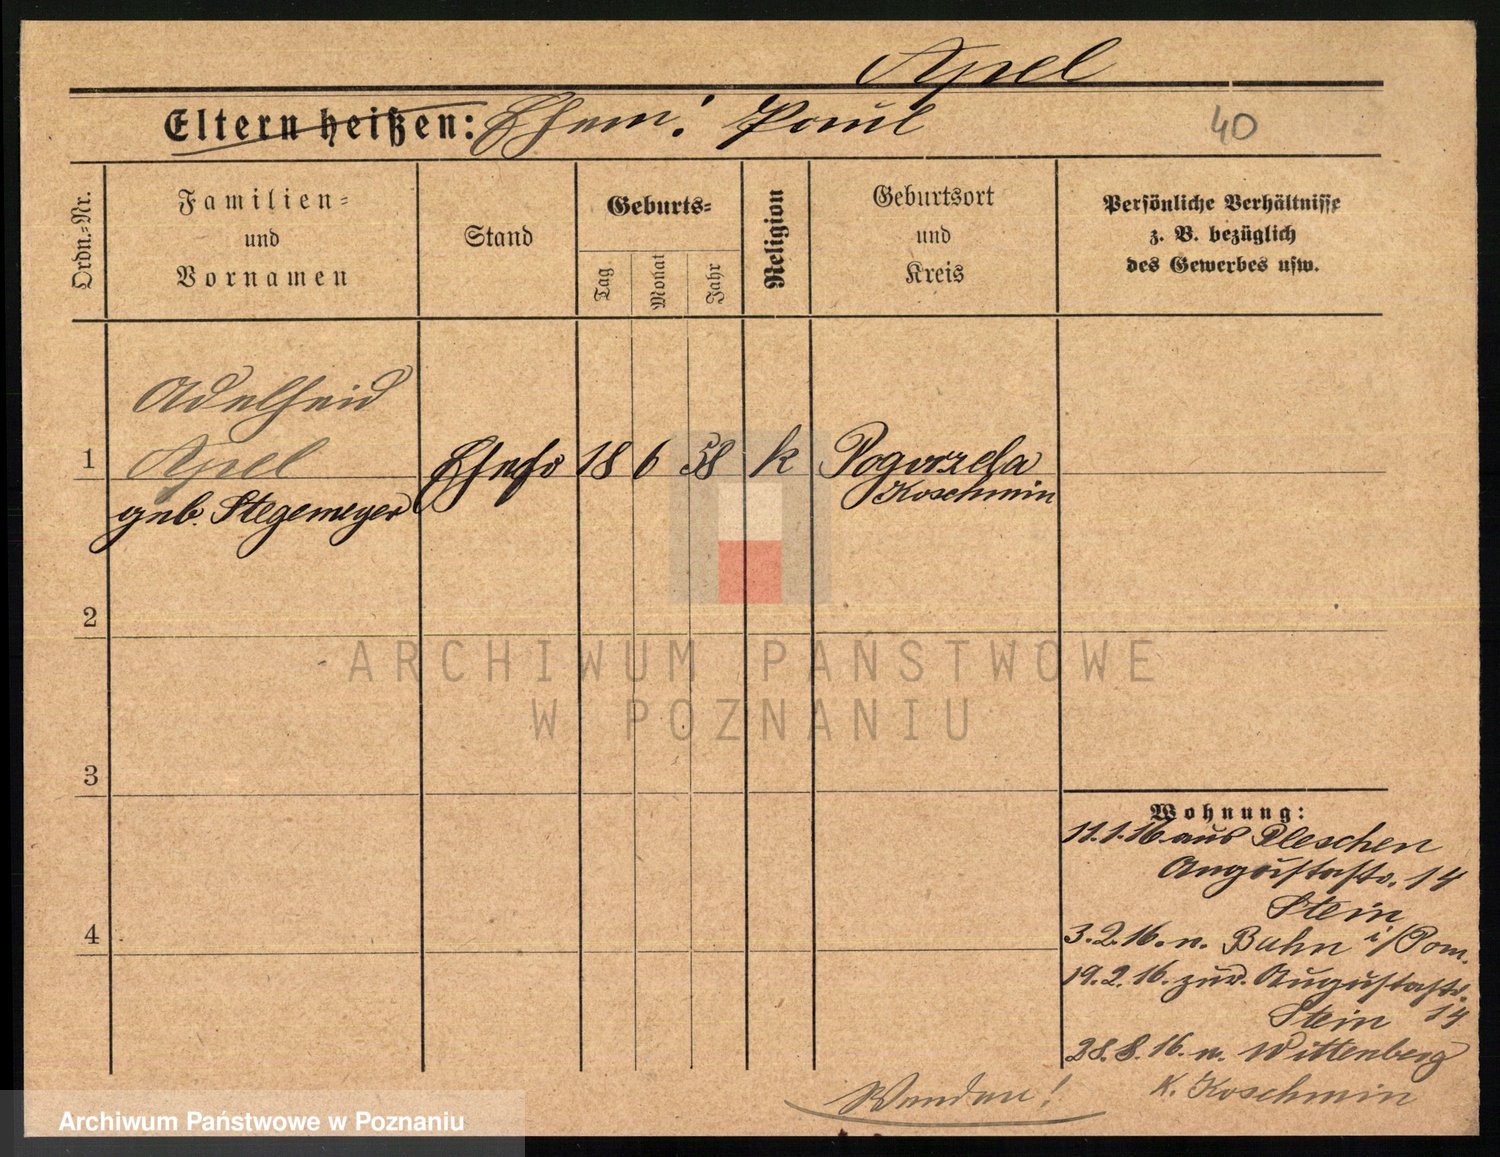 Apel
Eltern heißen: Ehem: Paul
40
Ordn.-Nr.
Familien-
und
Vornamen
Stand
Geburts-
Tag
Monat
Jahr
Religion
Geburtsort
und
Kreis
Persönliche Verhältnisse
z. B. bezüglich
des Gewerbes usw.
Adelheid
1 Apel Ehefr 18 6 58 k Pogorzela
geb. Stegemeyer Koschmin
2
ARCHIWUM PAŃSTWOWE
W POZNANIU
3
Wohnung:
11.1.16. aus Pleschen
Augustastr. 14
Stein
4
3.2.16. n. Bahn i/Pom.
19.2.16. zur. Augustastr.
Stein 14
28.8.16. n. Wittenberg
K. Koschmin
Wenden!
Archiwum Państwowe w Poznaniu